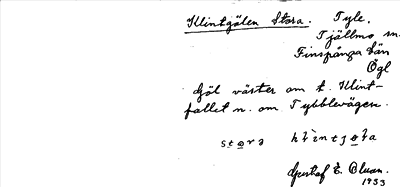 Klintgölen Stora. Tyle.
Tjällmo sn.
Finspånga län
Ögl
Göl väster om t. Klint-
fallet n. om Tybblevägen.
Gustaf E. Bluan.
1933